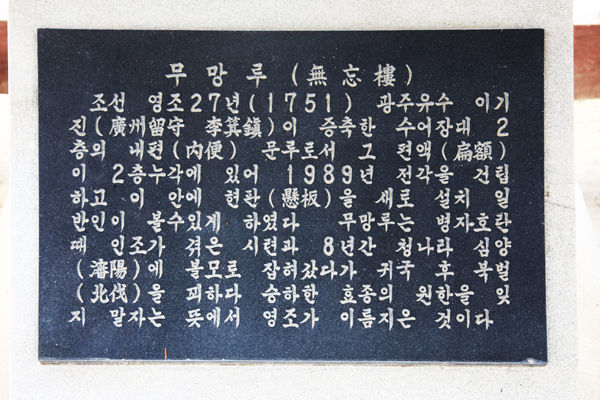 무망루(無忘樓)
조선 영조27년(1751) 광주유수 이기
진(廣州留守 李箕鎭)이 증축한 수어장대 2
층의 내편(內便) 문루로서 그 편액(扁額)
이 2층누각에 있어 1989년 전각을 건립
하고 이 안에 현판(懸板)을 새로 설치 일
반인이 볼수있게 하였다 무망루는 병자호란
때 인조가 겪은 시련과 8년간 청나라 심양
(瀋陽)에 볼모로 잡혀갔다가 귀국 후 북벌
(北伐)을 꾀하다 승하한 효종의 원한을 잊
지 말자는 뜻에서 영조가 이름지은 것이다